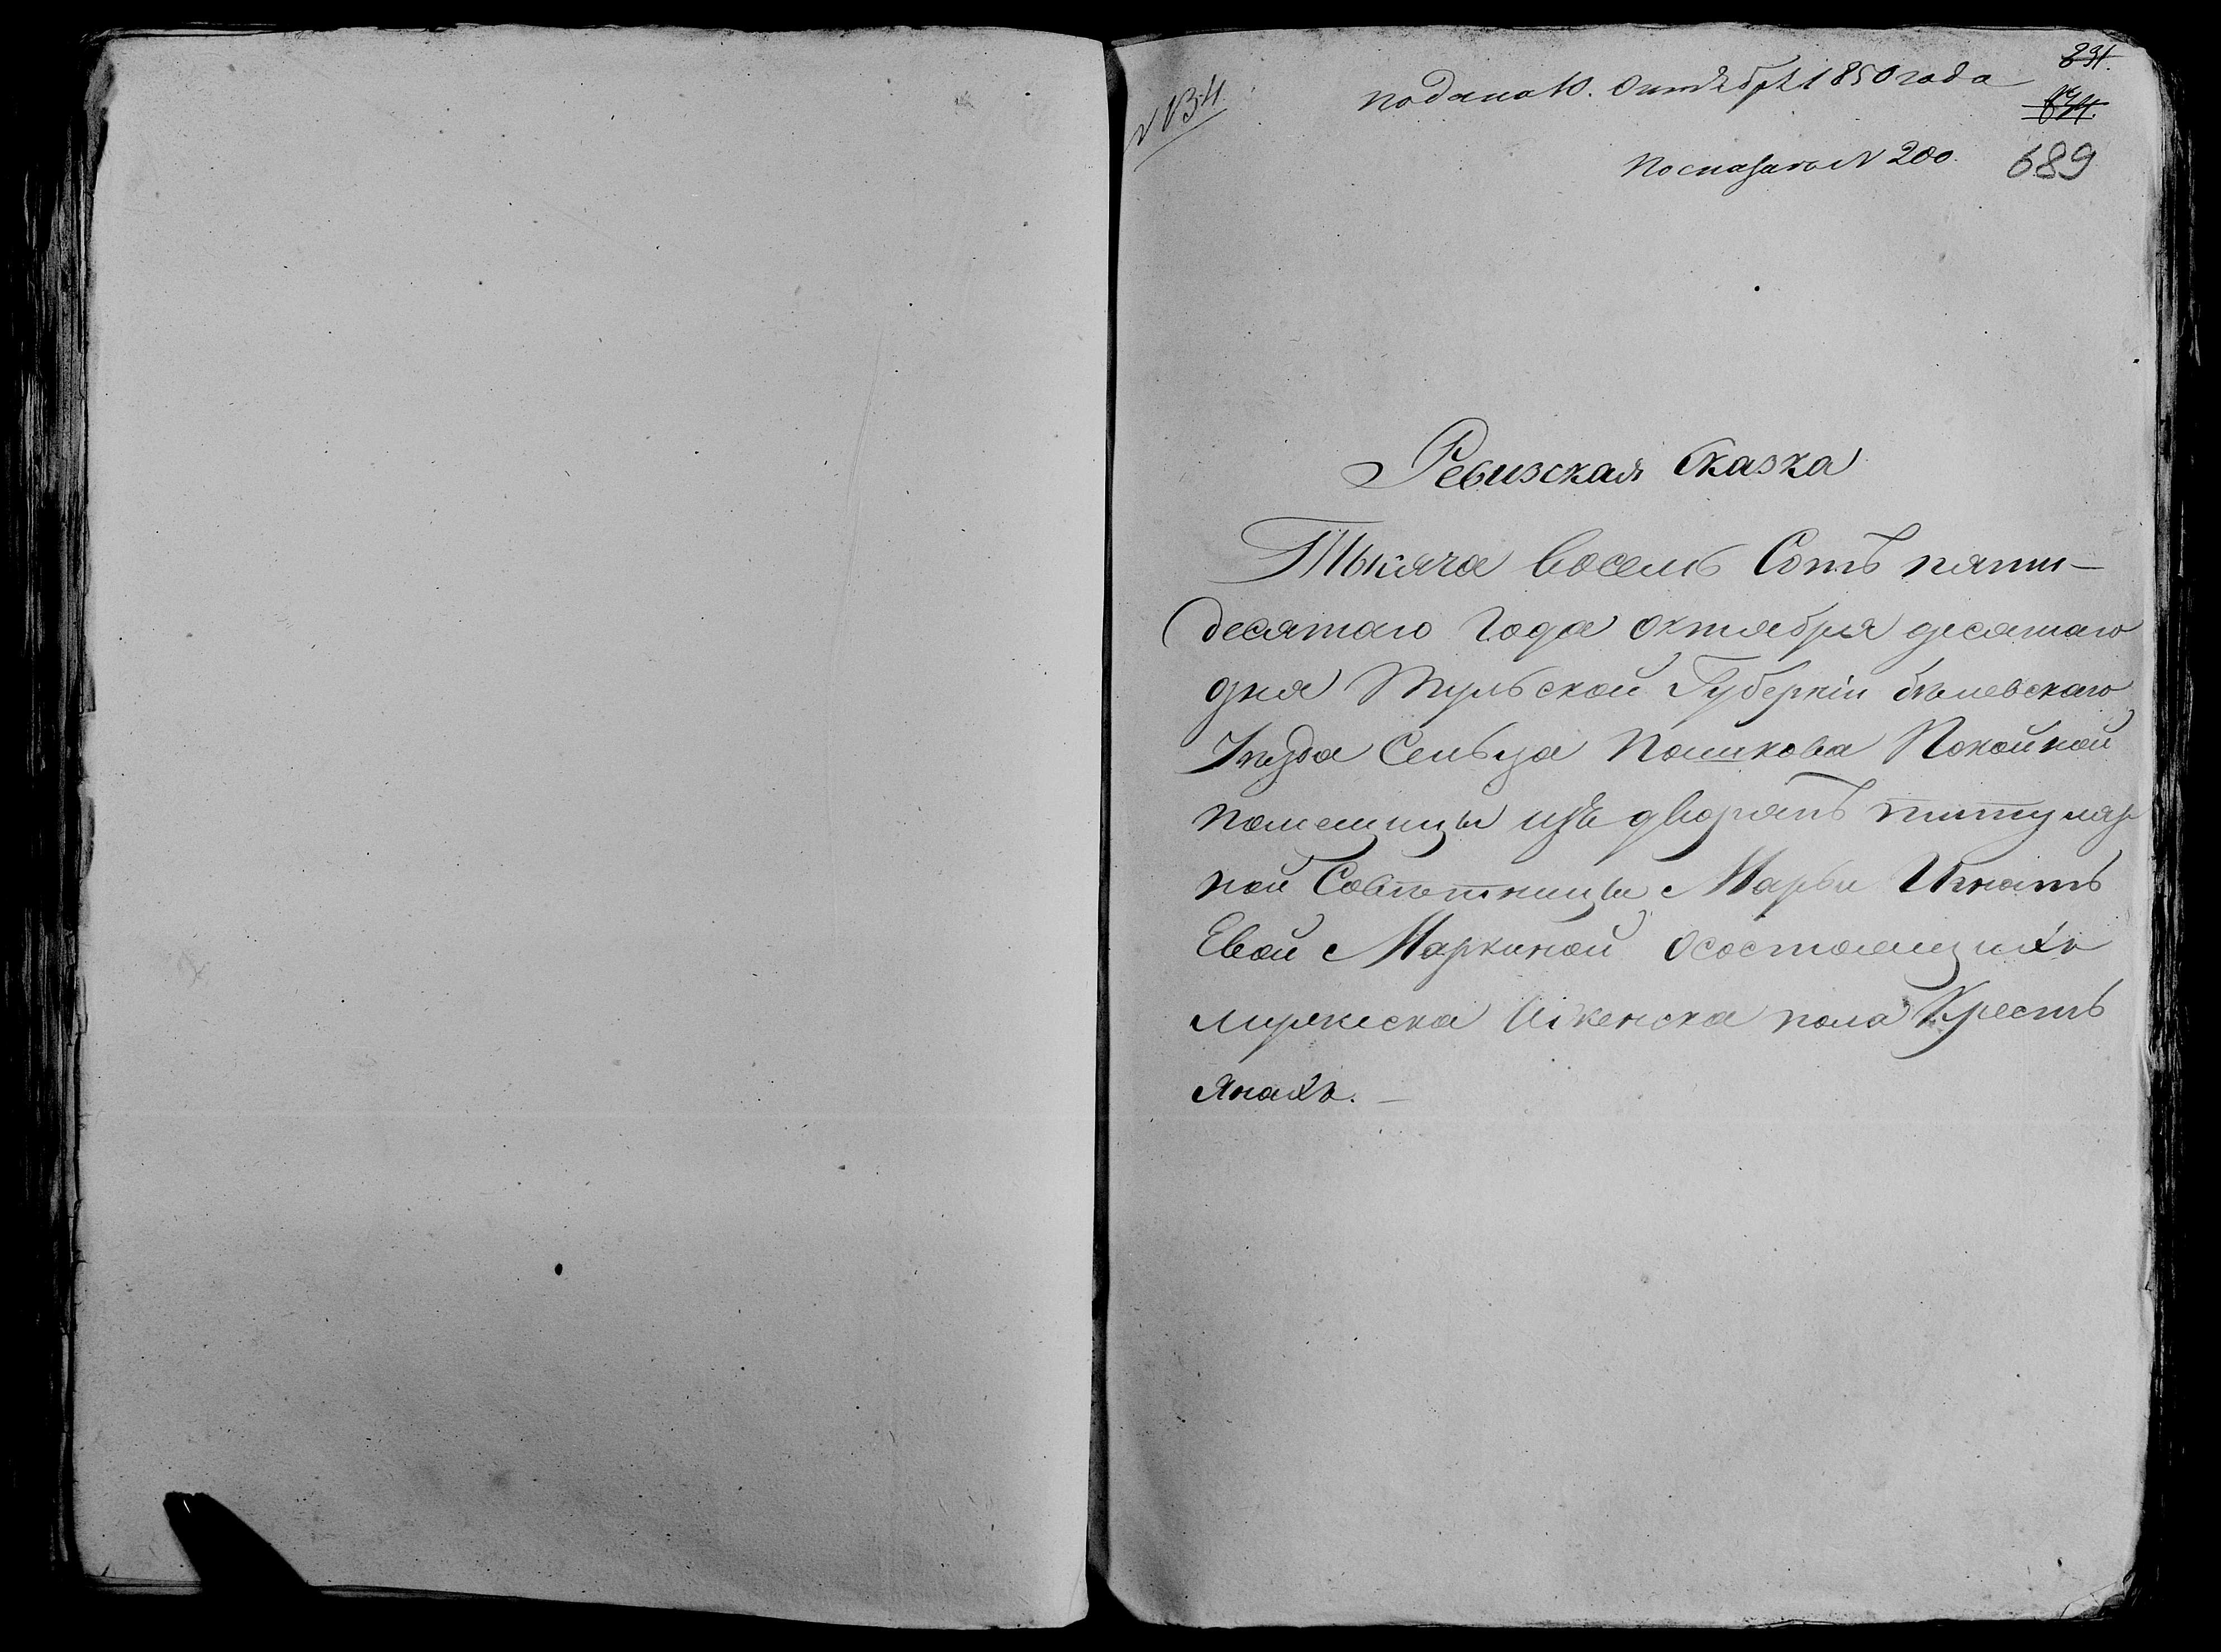 831.
подано 10. Октября 1850 года
N 134
874.
N 200.
689
Ревизская Сказка
Тысяча восемь Сотъ пяти-
десятаго года октября десятаго
дня Тульской Губерніи бѣлевскаго
Уѣзда Сельца Пашкова Покойной
помещицы изъ дворянъ титуляр
ной Совѣтницы Марьи Игнать
Евой Маркиной осостоящихъ
мужеска Иженска пола Кресть
Янахъ. —